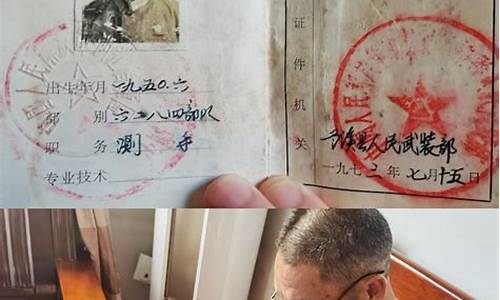 出生年月一九五〇.六
部別六二八四部队
职务测手
专业技术
证件机关
溪县人民武装部
一九七三年七月十五日